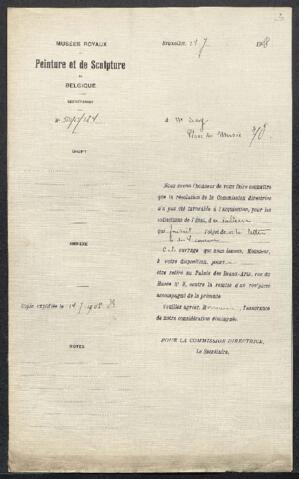 MUSÉES ROYAUX
DE
Peinture et de Sculpture
DE
BELGIQUE
SECRÉTARIAT
N°
OBJET
ANNEXE
Copie expédiée le 14/7 1908
NOTES
Bruxelles, 14/7 1908
à Mr
Place du Musée
Nous avons l'honneur de vous faire connaître
que la résolution de la Commission directrice
n'a pas été favorable à l'acquisition, pour les
collections de l'État, d
qui faisait l'objet de votre lettre
du
C t ouvrage que nous tenons, Monsieur,
à votre disposition, pour
être retiré au Palais des Beaux-Arts, rue du
Musée n° 9, contre la remise d'un récépissé
accompagné de la présente
Veuillez agréer, Monsieur, l'assurance
de notre considération distinguée.
POUR LA COMMISSION DIRECTRICE,
Le Secrétaire,